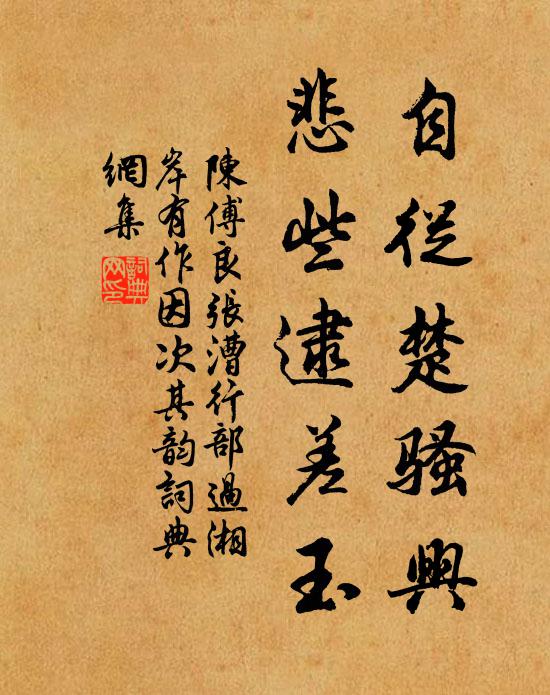 自從楚骚興
悲些逮差玉
陳傅良張漕行部過湘
岸有作因次其韵詞典
網集
詞典
网印